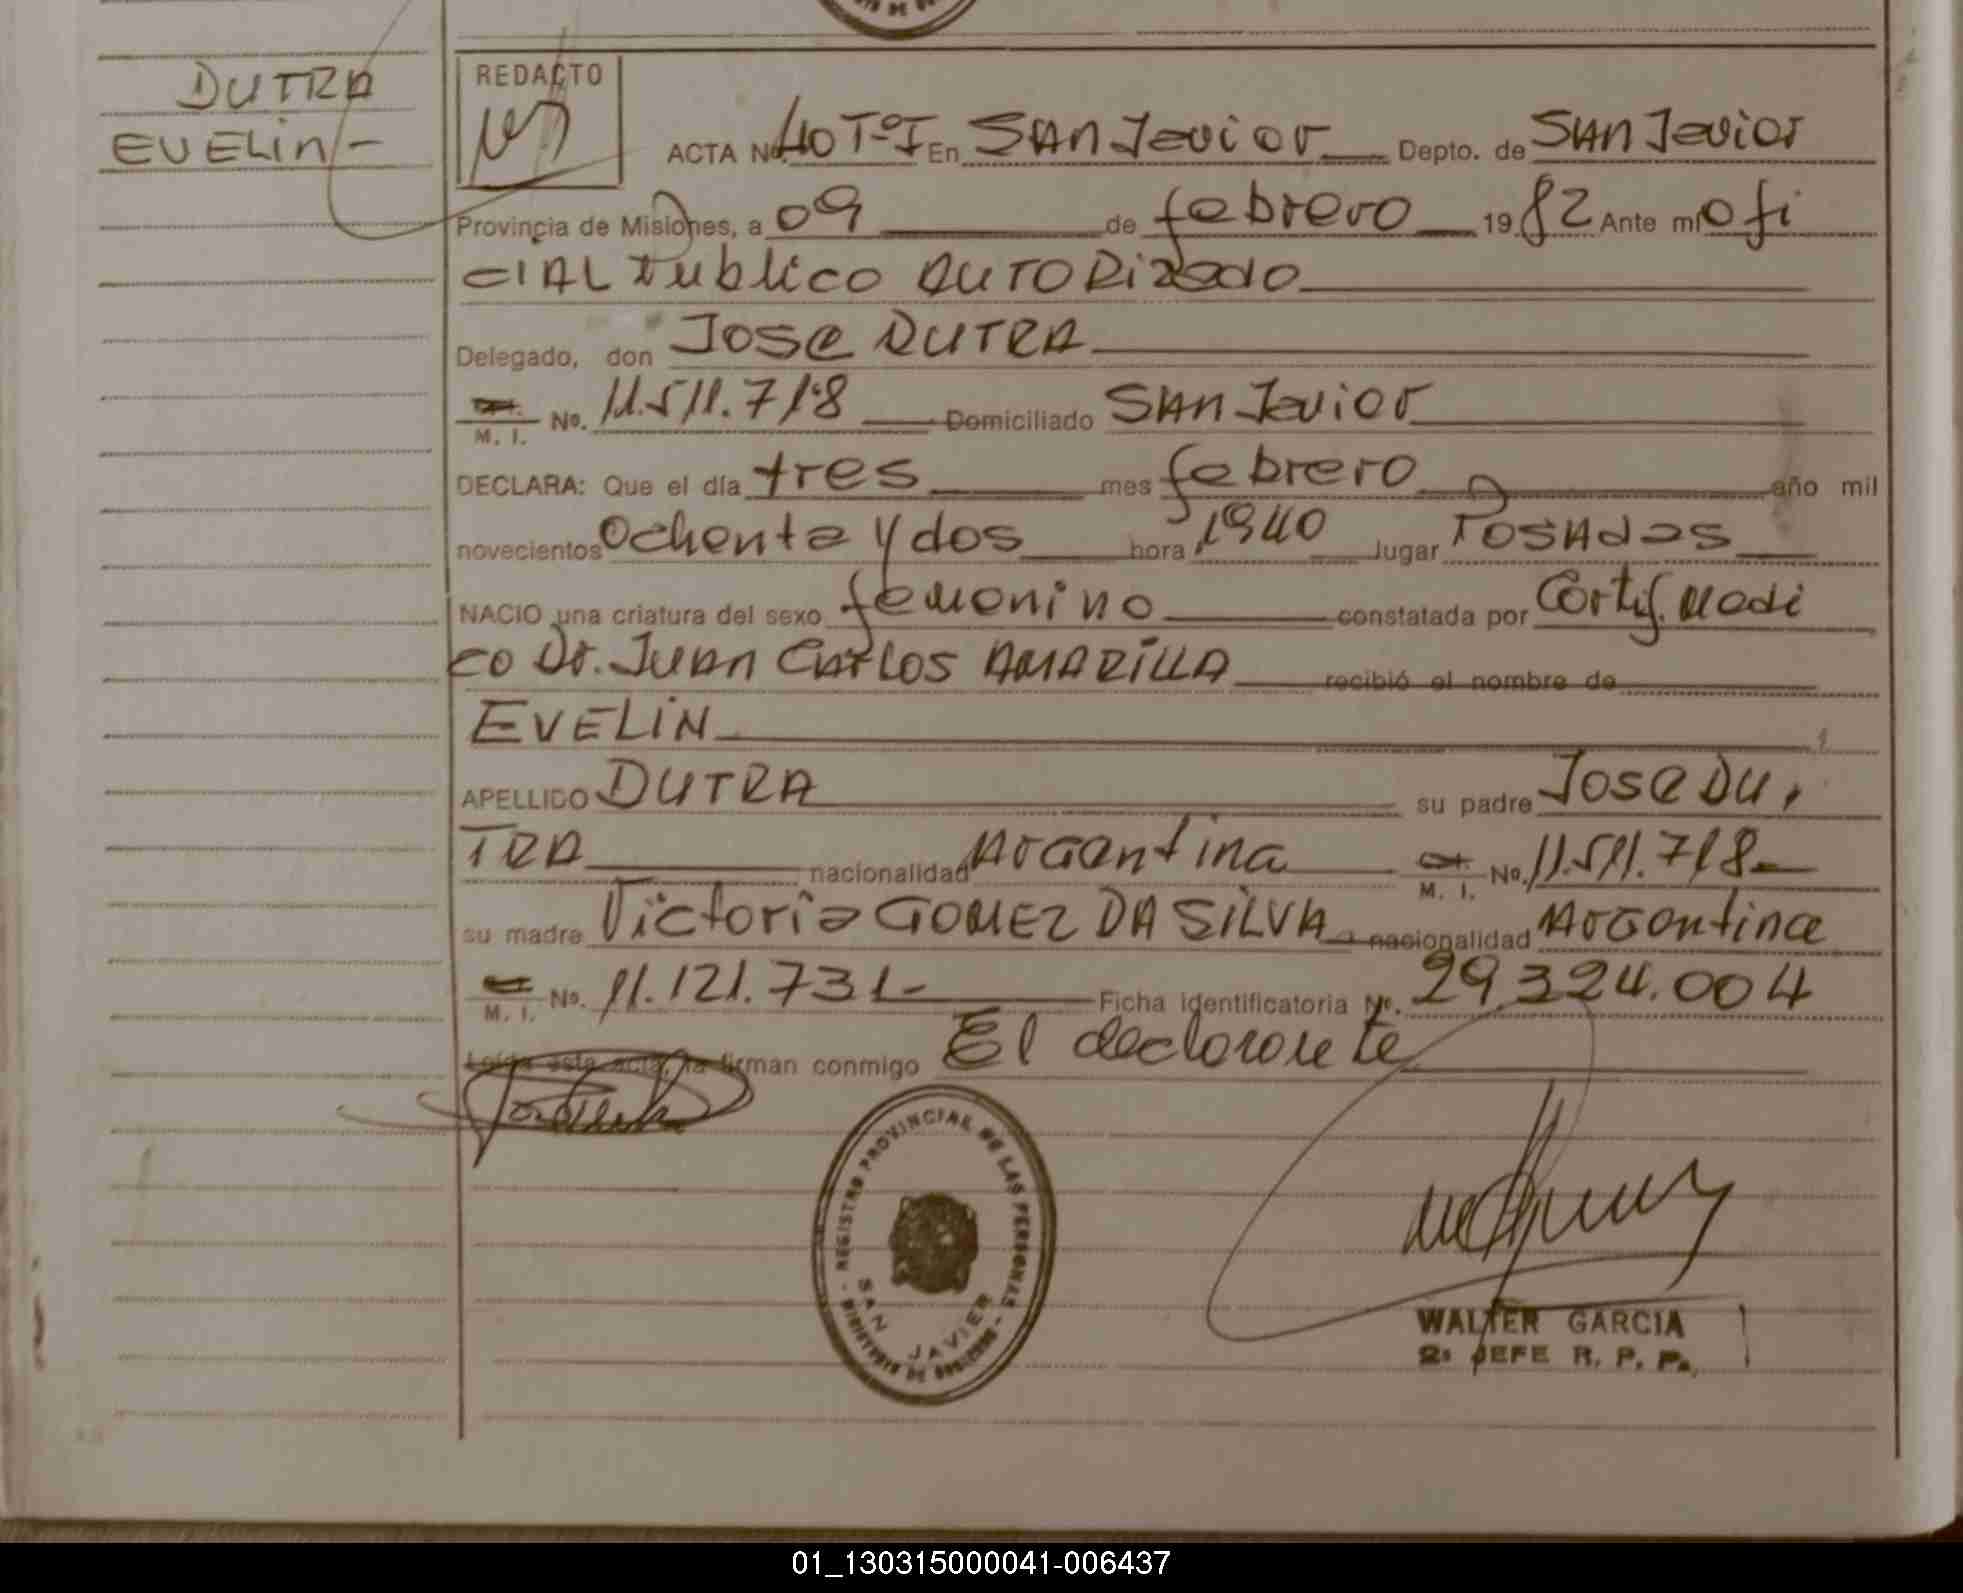 DUTRA
EVELIN-
REDACTO
ACTA Nº 40 TºI En SAN Javier Depto. de SAN Javier
Provincia de Misiones, a 09 de febrero 1982 Ante mí ofi
CIAL Publico AUTORizado
Delegado, don Jose DUTRA
M. I. Nº. 11.511.718 Domiciliado SAN Javier
DECLARA: Que el día tres mes febrero año mil
novecientos Ochenta y dos hora 1940 lugar POSAdas
NACIO una criatura del sexo femenino constatada por Certif. Medi
co Dr. JUAN CARLOS AMARILLA recibió el nombre de
EVELIN
APELLIDO DUTRA su padre Jose DU
TRA nacionalidad Argentina M. I. Nº. 11.511.718-
su madre Victoria GOMEZ DA SILVA nacionalidad Argentina
M. I. Nº. 11.121.731- Ficha identificatoria Nº. 29.324.004
Leída esta acta, la firman conmigo El declarante
REGISTRO PROVINCIAL DE LAS PERSONAS
SAN JAVIER
MINISTERIO DE GOBIERNO
WALTER GARCIA
2º JEFE R. P. P.
01_130315000041-006437